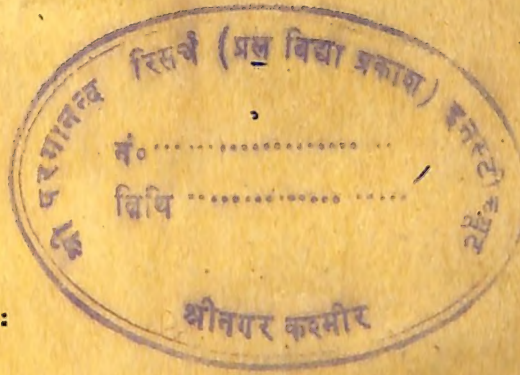 श्री परमानन्द रिसर्च (प्रल विद्या प्रकाश) इनस्टीच्यूट
नं० ....................
तिथि ....................
श्रीनगर कश्मीर
: